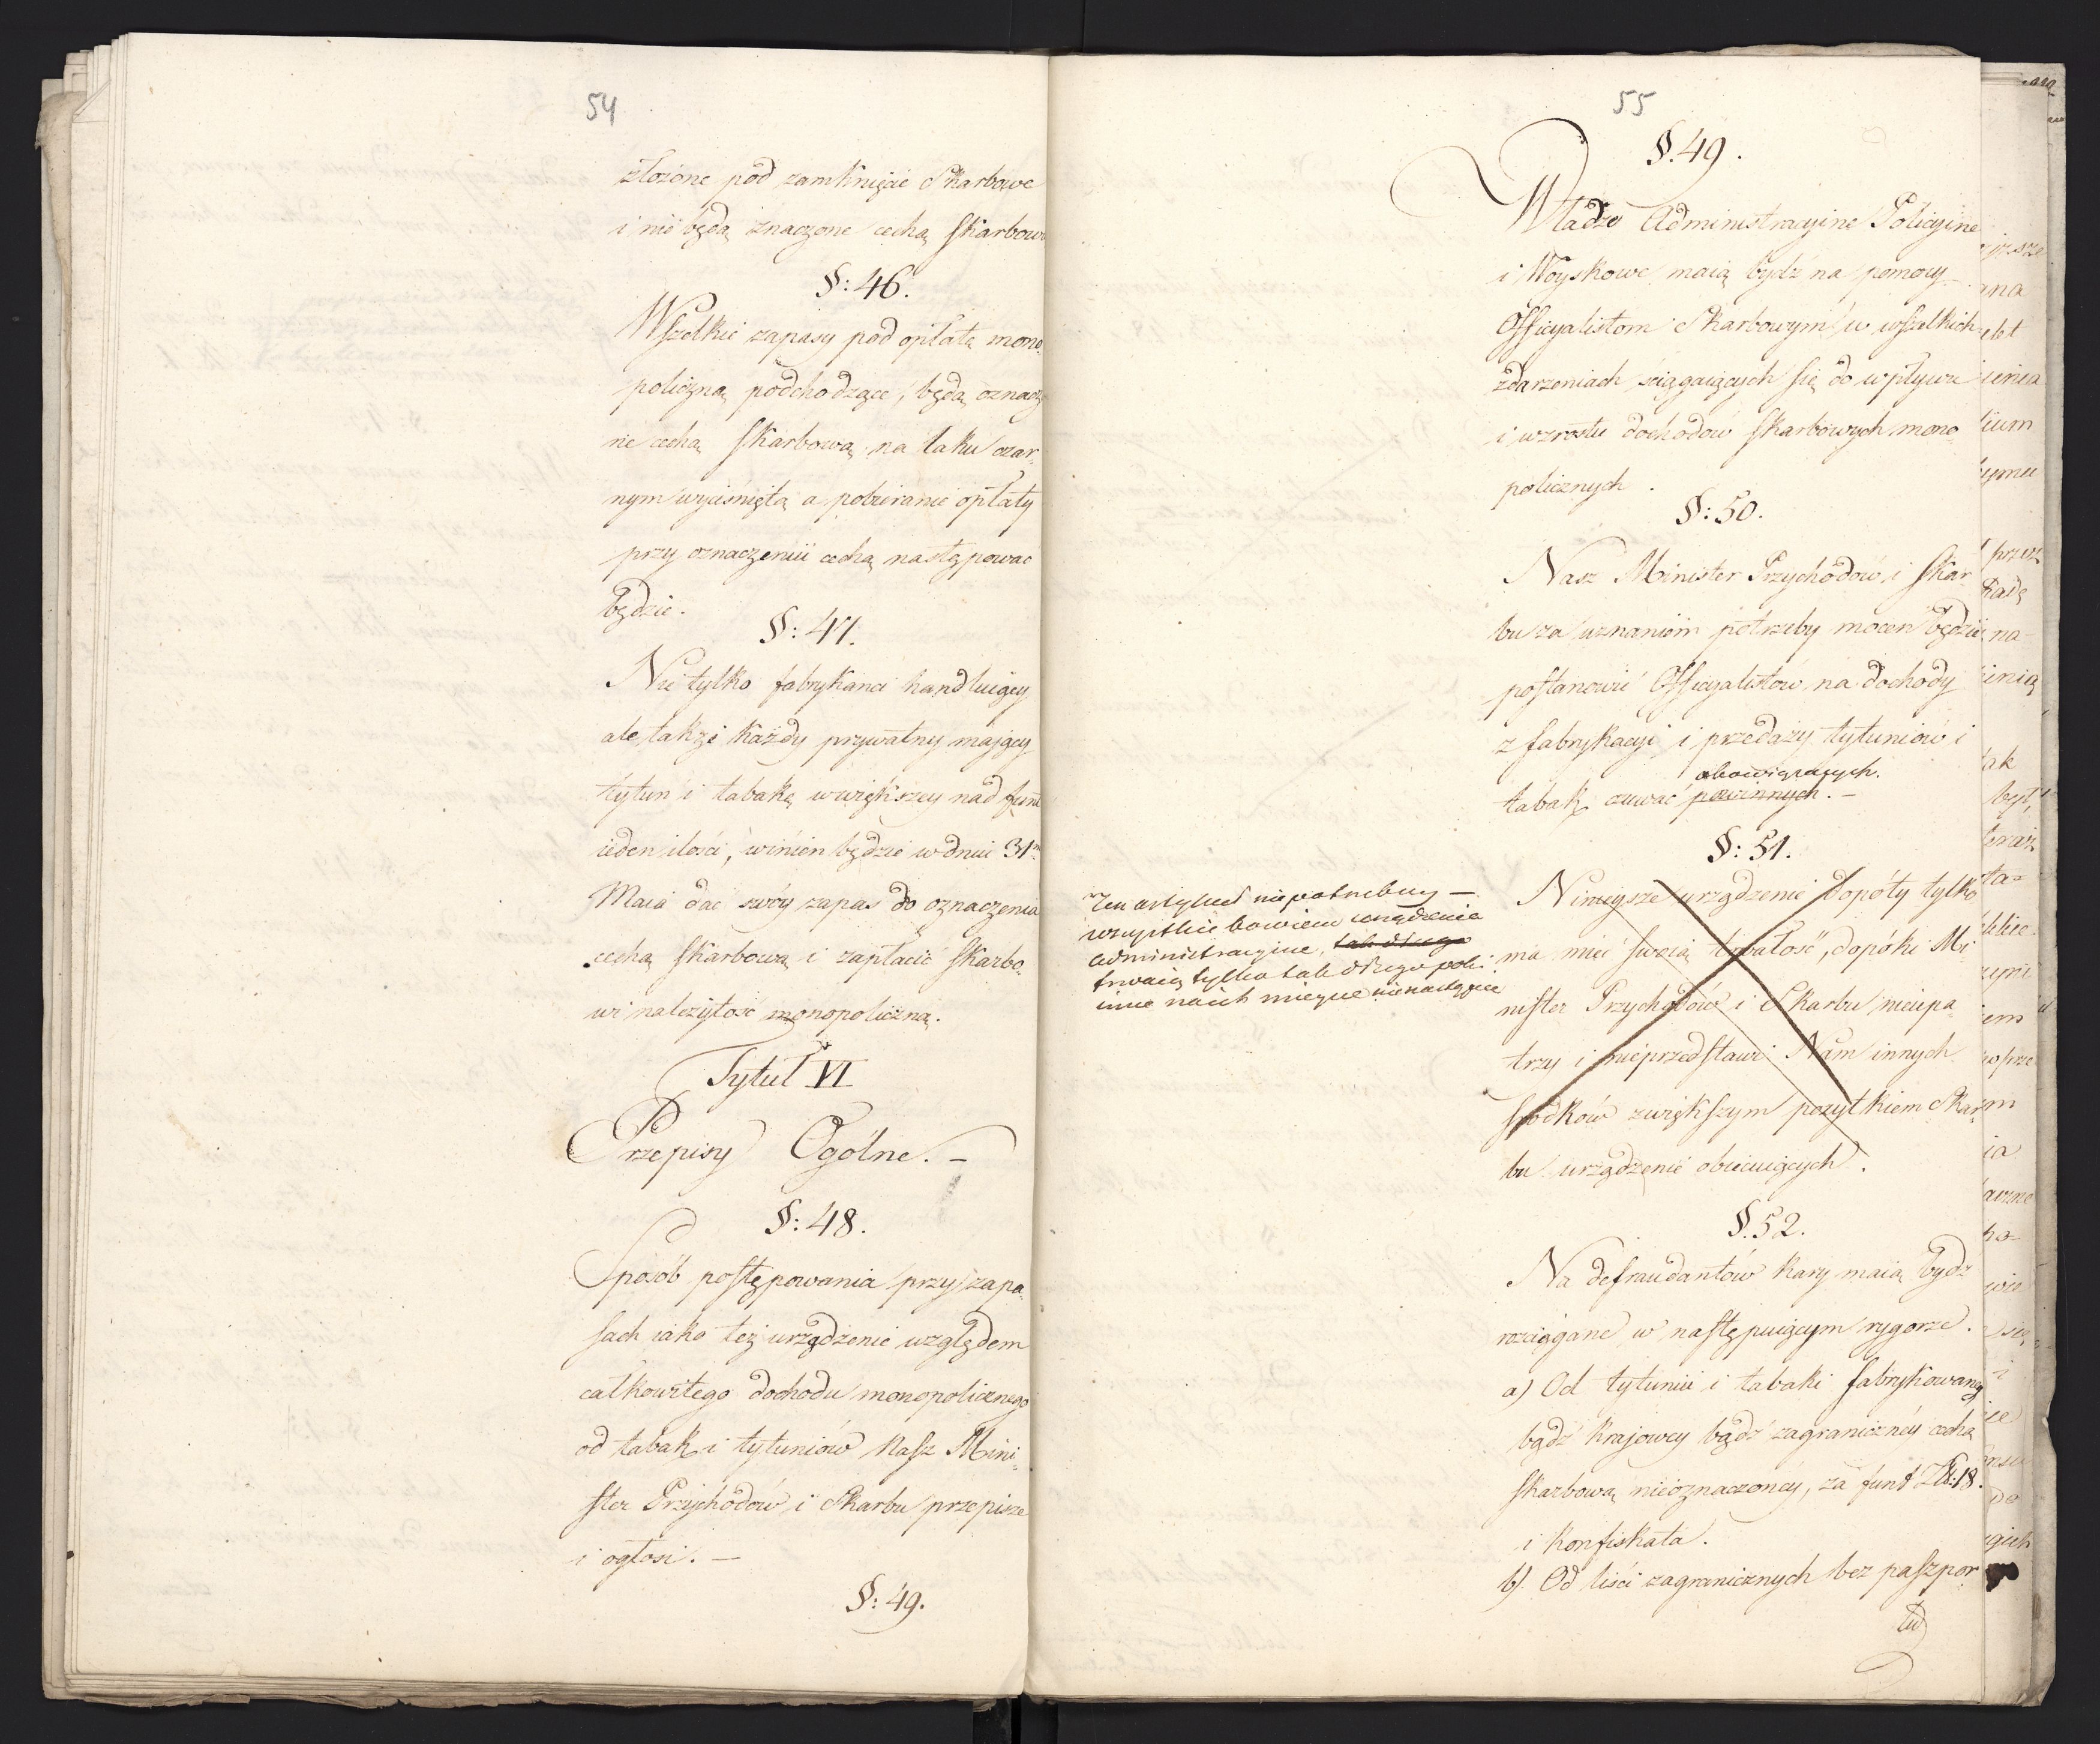 54
złożone pod zamknięcie Skarbowe
i nie będą znaczone cechą Skarbową
§: 46.
Wszelkie zapasy pod opłatę mono-
policzną podchodzące, będą oznaczo
ne cechą Skarbową na laku czar-
nym wyciśniętą a pobieranie opłaty
przy oznaczeniu cechą następować
będzie.
§: 47.
Nie tylko fabrykanci handluiący
ale także każdy prywatny maiący
tytuń i tabakę w większey nad funt
ieden ilości, winien będzie w dniu 31m
Maia dać swóy zapas do oznaczenia
cechą Skarbową i zapłacić Skarbo-
wi należytość monopoliczną.
Tytuł VI
Przepisy Ogólne. –
§: 48.
Sposób postępowania przy zapa-
sach iako też urządzenie względem
całkowitego dochodu monopolicznego
od tabak i tytuniów Nasz Mini-
ster Przychodów i Skarbu przepisze
i ogłosi. –
§: 49.
55
§. 49.
Władze Administracyine Policyine
i Woyskowe maią bydź na pomocy
Officyalistom Skarbowym w wszelkich
zdarzeniach ściągaiących się do wpływu
i wzrostu dochodów Skarbowych mono-
policznych.
§: 50.
Nasz Minister Przychodów i Skar
bu za uznaniem potrzeby mocen będzie
postanowić Officyalistów na dochody
z fabrykacyi i przedaży tytuniów i
obowiązanych.
tabak czuwać powinnych. –
§: 51.
Ten artykuł niepotrzebny –
wszystkie bowiem urządzenia
administracyine, tak długo
trwaią tylko tak długo poki
inne na ich mieysce nienastąpią
Ninieysze urządzenie dopóty tylko
ma mieć swoią trwałość, dopóki Mi
nister Przychodów i Skarbu nieupa-
trzy i nieprzedstawi Nam innych
środków z większym pożytkiem Skar-
bu urządzenie obiecuiących.
§. 52.
Na defraudantów kary maią bydź
rozciągane w następuiącym rygorze.
a) Od tytuniu i tabaki fabrykowaney
bądź kraiowey bądź zagraniczney cechą
skarbową nieoznaczoney, za funt Zł: 18.
i konfiskata.
b). Od liści zagranicznych bez paszpor-
tu